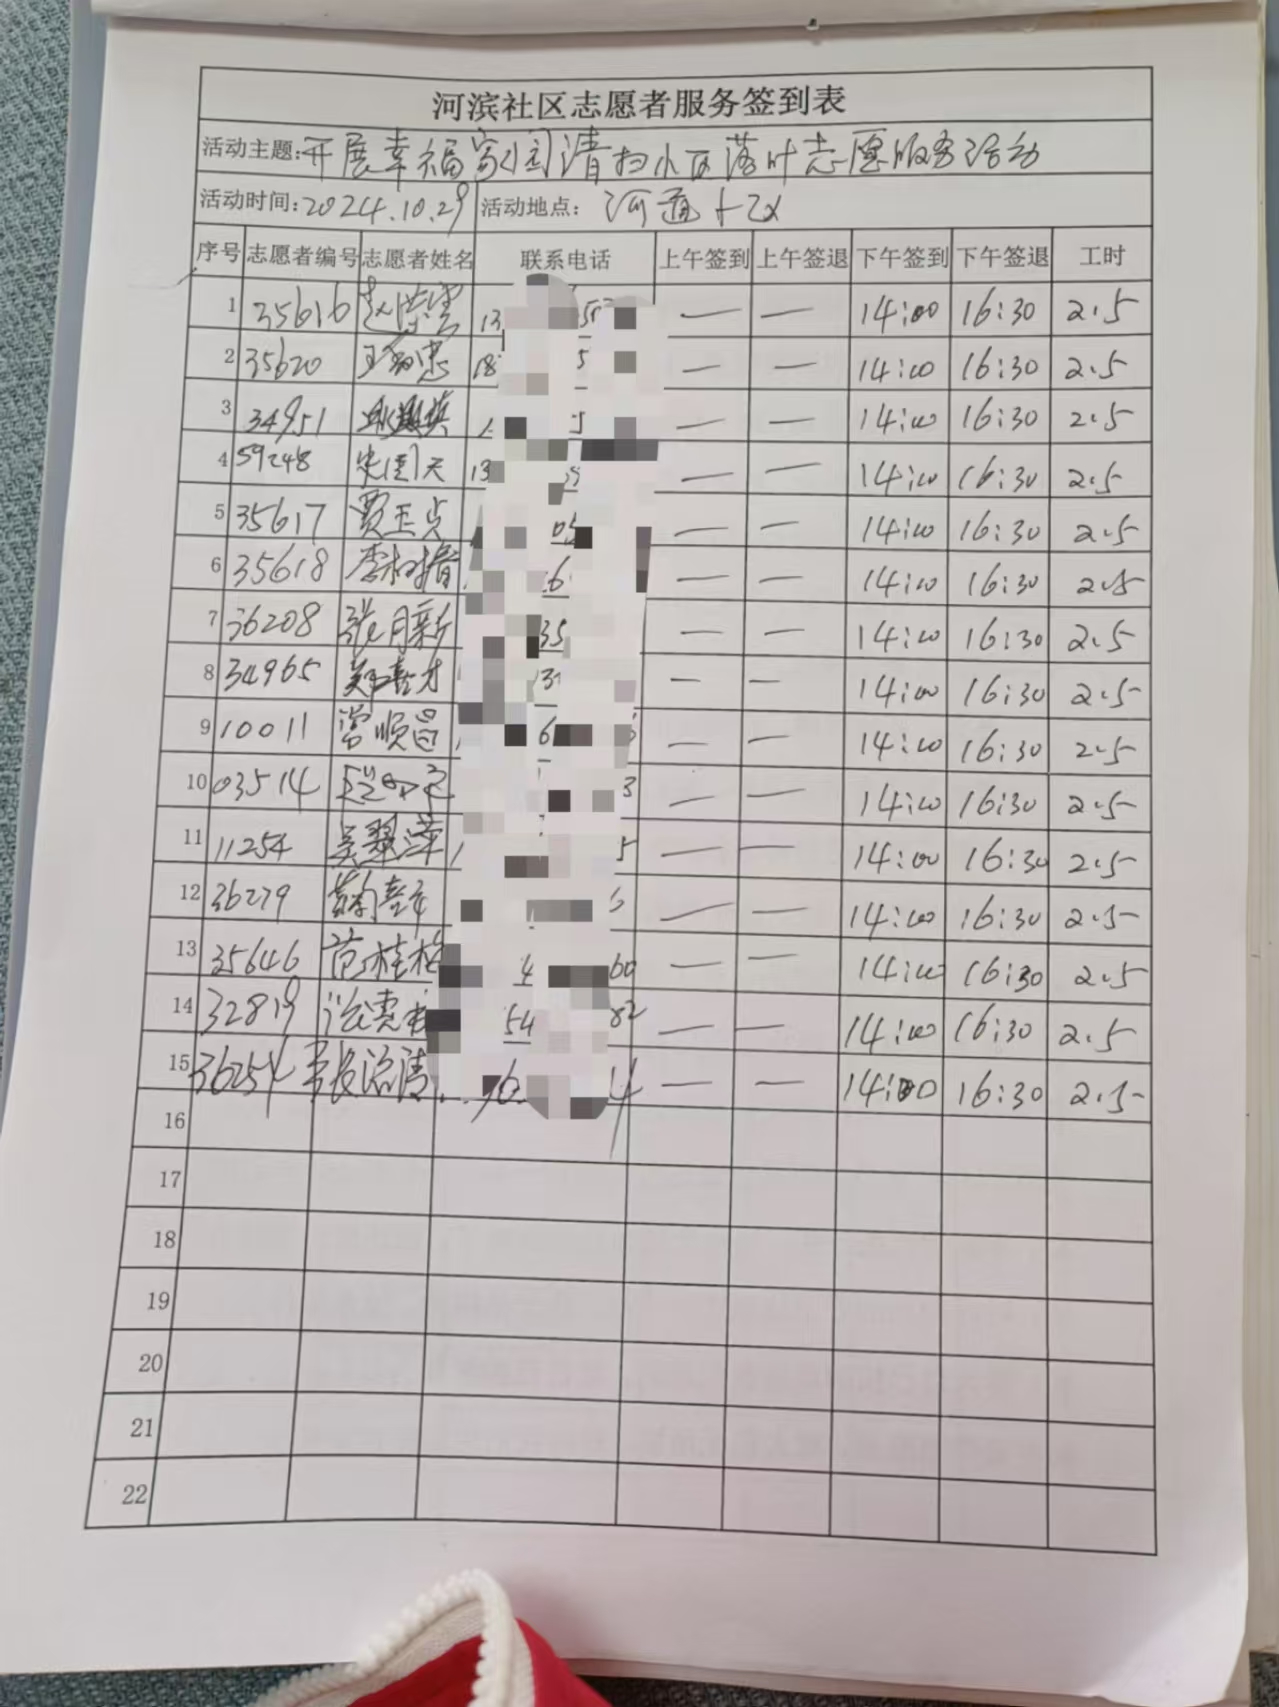 河滨社区志愿者服务签到表
活动主题:开展幸福家园清扫小区落叶志愿服务活动
活动时间:2024.10.29 活动地点: 河道小区
序号 志愿者编号 志愿者姓名 联系电话 上午签到 上午签退 下午签到 下午签退 工时
1 35616 13 — — 14:00 16:30 2.5
2 35620 18 5 — — 14:00 16:30 2.5
3 34951 5 — — 14:00 16:30 2.5
4 59248 13 — — 14:00 16:30 2.5
5 35617 贾玉贞 05 — — 14:00 16:30 2.5
6 35618 6 — — 14:00 16:30 2.5
7 36208 张月新 35 — — 14:00 16:30 2.5
8 34965 3 — — 14:00 16:30 2.5
9 10011 常顺昌 6 — — 14:00 16:30 2.5
10 03514 3 — — 14:00 16:30 2.5
11 11254 吴翠萍 1 5 — — 14:00 16:30 2.5
12 36279 — — 14:00 16:30 2.5
13 35646 范桂 4 60 — — 14:00 16:30 2.5
14 32819 54 82 — — 14:00 16:30 2.5
15 36254 6 4 — — 14:00 16:30 2.5
16
17
18
19
20
21
22